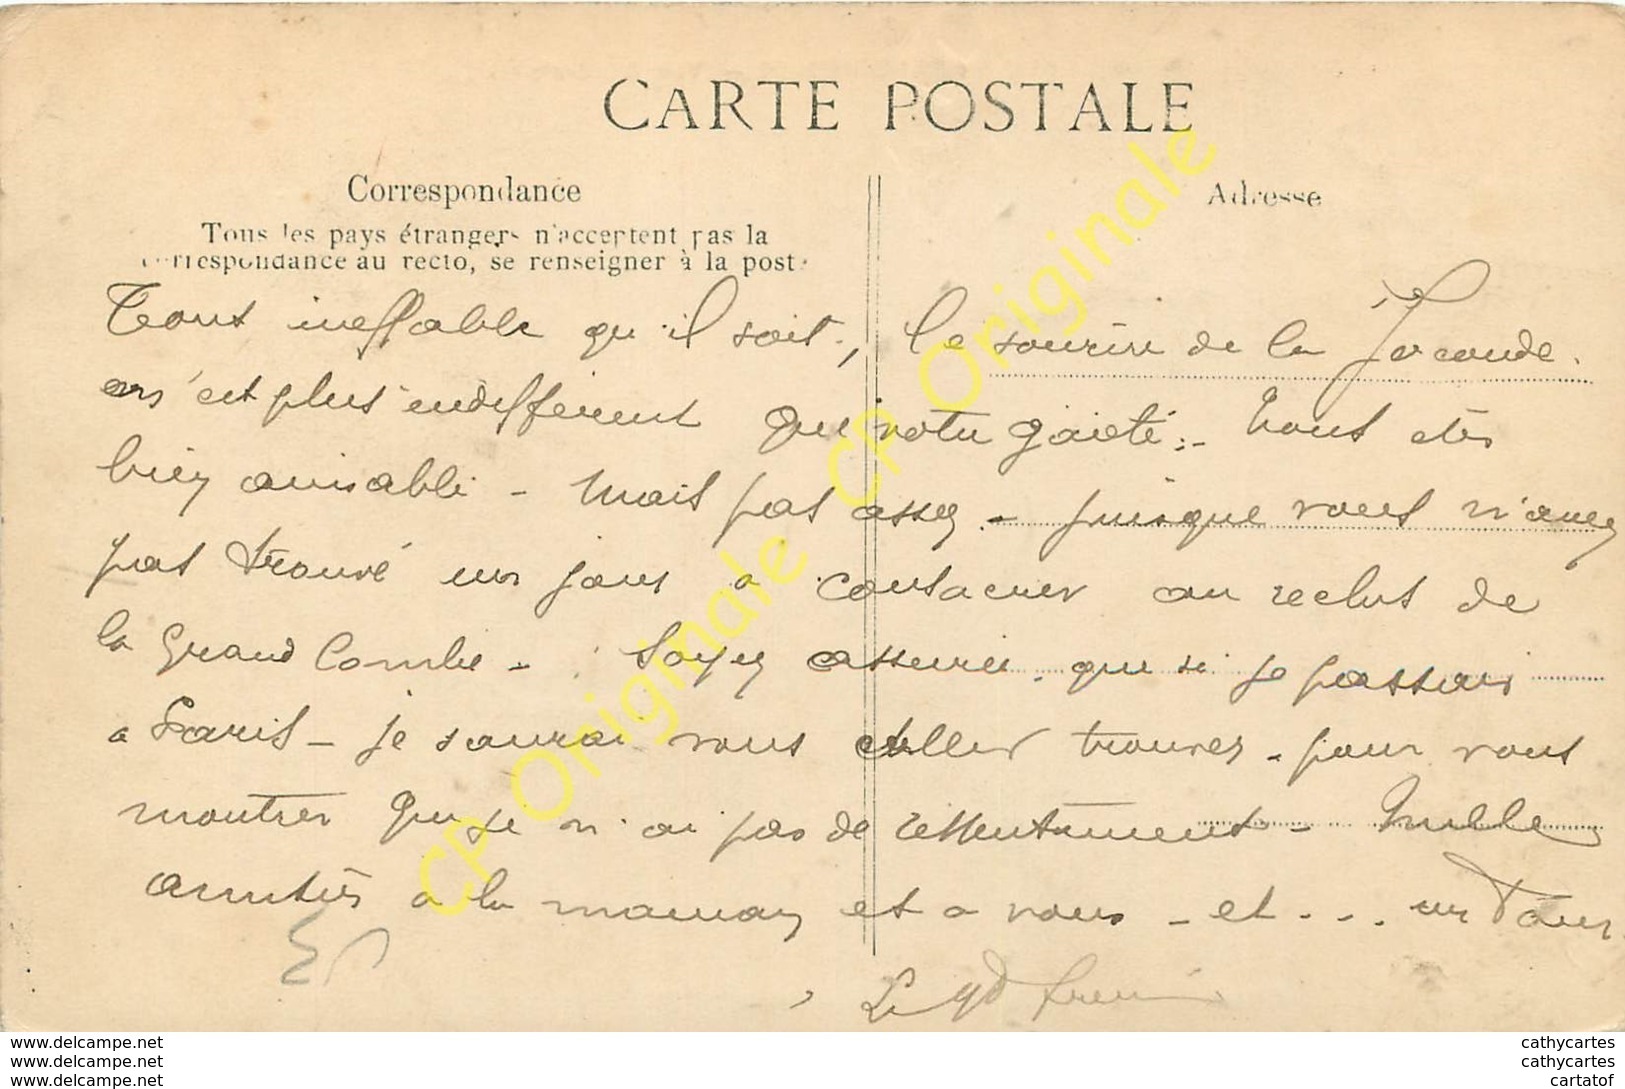 CARTE POSTALE
Correspondance
Adresse
Tous les pays étrangers n'acceptent pas la
correspondance au recto, se renseigner à la poste
Tout ineffable qu'il soit, le sourire de la Joconde.
m'est plus indifférent que votre gaieté. Vous êtes
bien aimable - Mais pas assez - puisque vous n'avez
pas trouvé un jour à consacrer au reclus de
la Grand Combe - Soyez assurée que si je passais
à Paris - je saurai vous aller trouver - pour vous
montrer que je n'ai pas de ressentiment - Mille
amitiés à la maman et à vous - et ... un
CP Originale CP Originale CP Originale
www.delcampe.net
www.delcampe.net
www.delcampe.net
cathycartes
cathycartes
cartatof